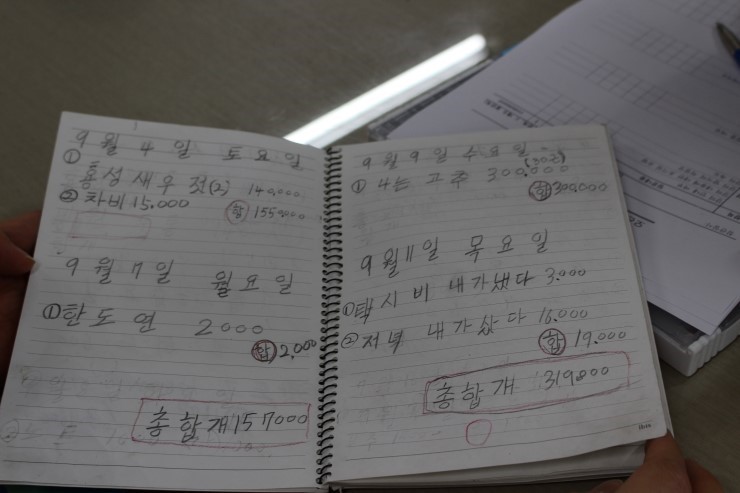 9월 4일 토요일
①
홍성새우젓(2) 140,000
② 차비 15.000 ㉻ 155000
9월 7일 월요일
① 한도연 2000
㉻ 2,000
총합개 157000
9월 9일 수요일
(30근)
① 나는 고추 300.000
㉻ 300000
9월 11일 목요일
① 탁시비 내가냈다 3.000
② 저녁 내가샀다 16.000
㉻ 19.000
총합개 319000